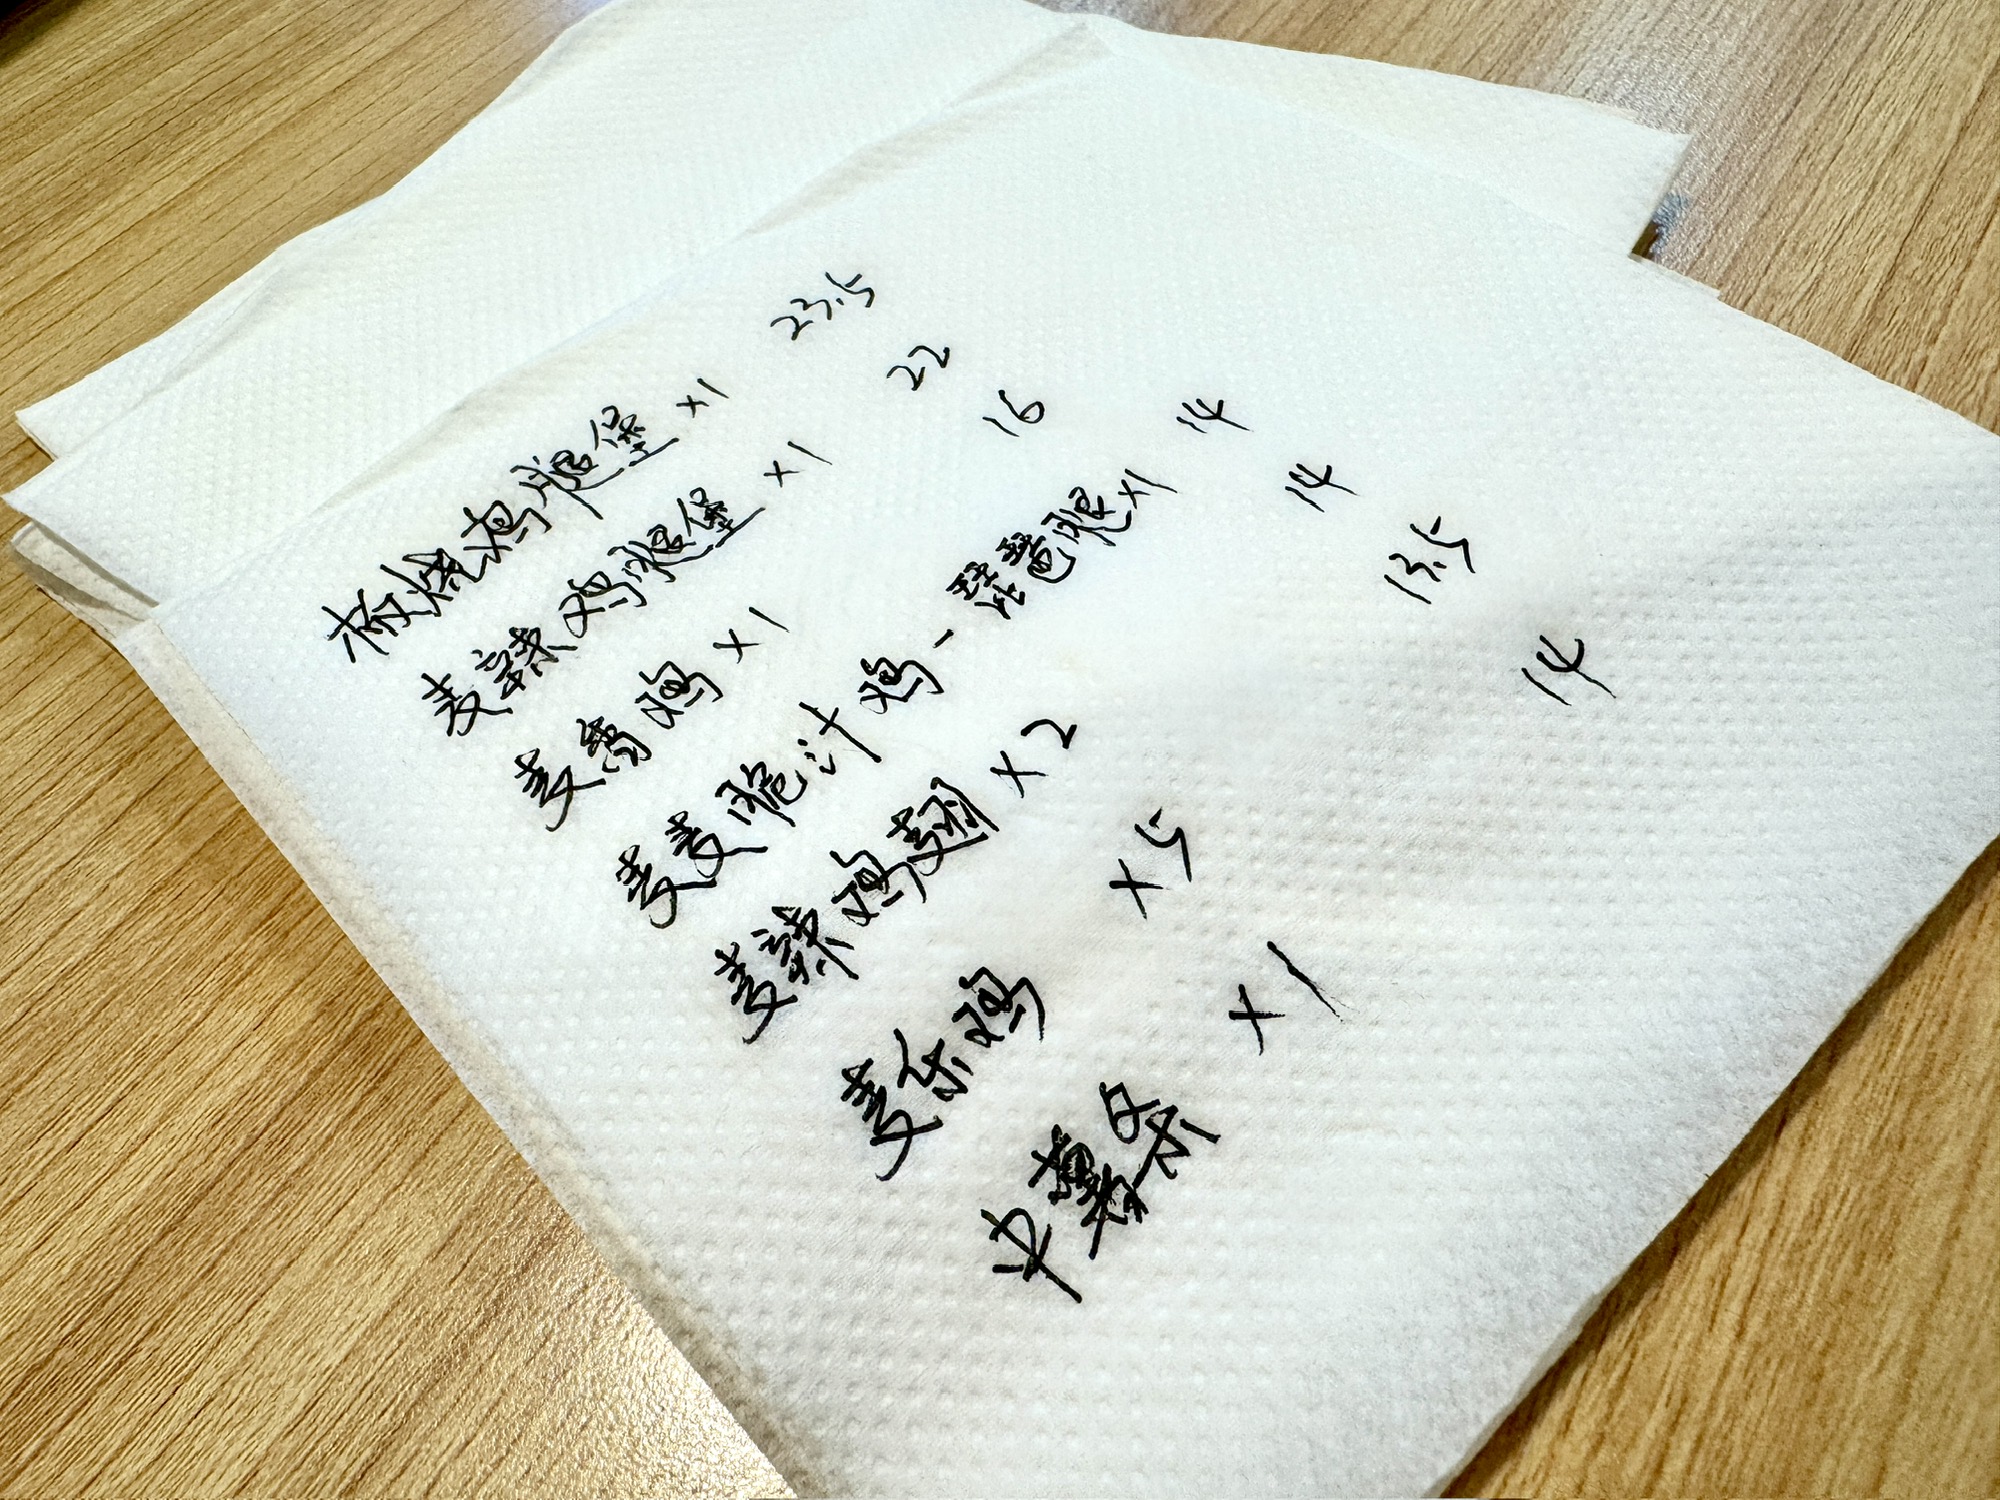 板烧鸡腿堡 ×1 23.5
麦辣鸡腿堡 ×1 22
麦香鸡 ×1 16
麦麦脆汁鸡-琵琶腿×1 14
麦辣鸡翅 ×2 14
麦乐鸡 ×5 13.5
中薯条 ×1 14